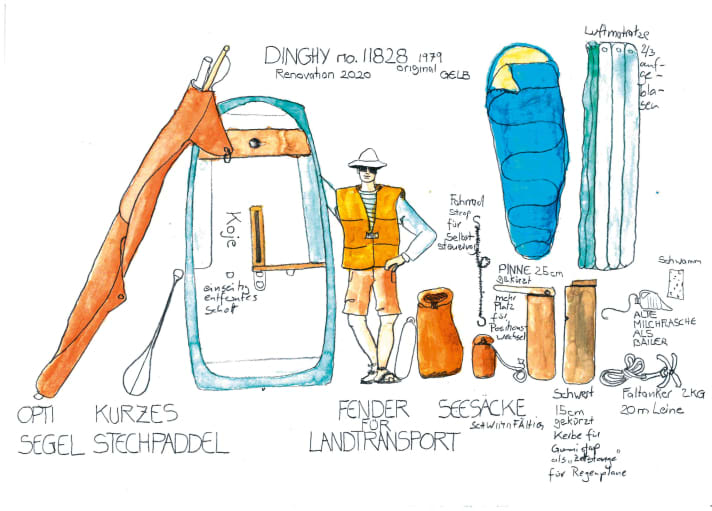 DINGHY no. 11828 1979
Renovation 2020 original GELB
Luftmatratze
2/3
auf-
ge-
bla-
sen
Fahrrad
Strap
für
Selbst
steuerung
Koje
einseitig
entferntes
Schott
PINNE 25cm
gekürzt
mehr
Platz
für
Positions
wechsel
Schwamm
ALTE
MILCHFLASCHE
ALS
BAILER
OPTI
SEGEL
KURZES
STECHPADDEL
FENDER
FÜR
LANDTRANSPORT
SEESÄCKE
SCHWIMMFÄHIG
Schwert
15cm
gekürzt
Kerbe für
als "Zeltstange"
für Regenplane
Faltanker 2KG
20m Leine